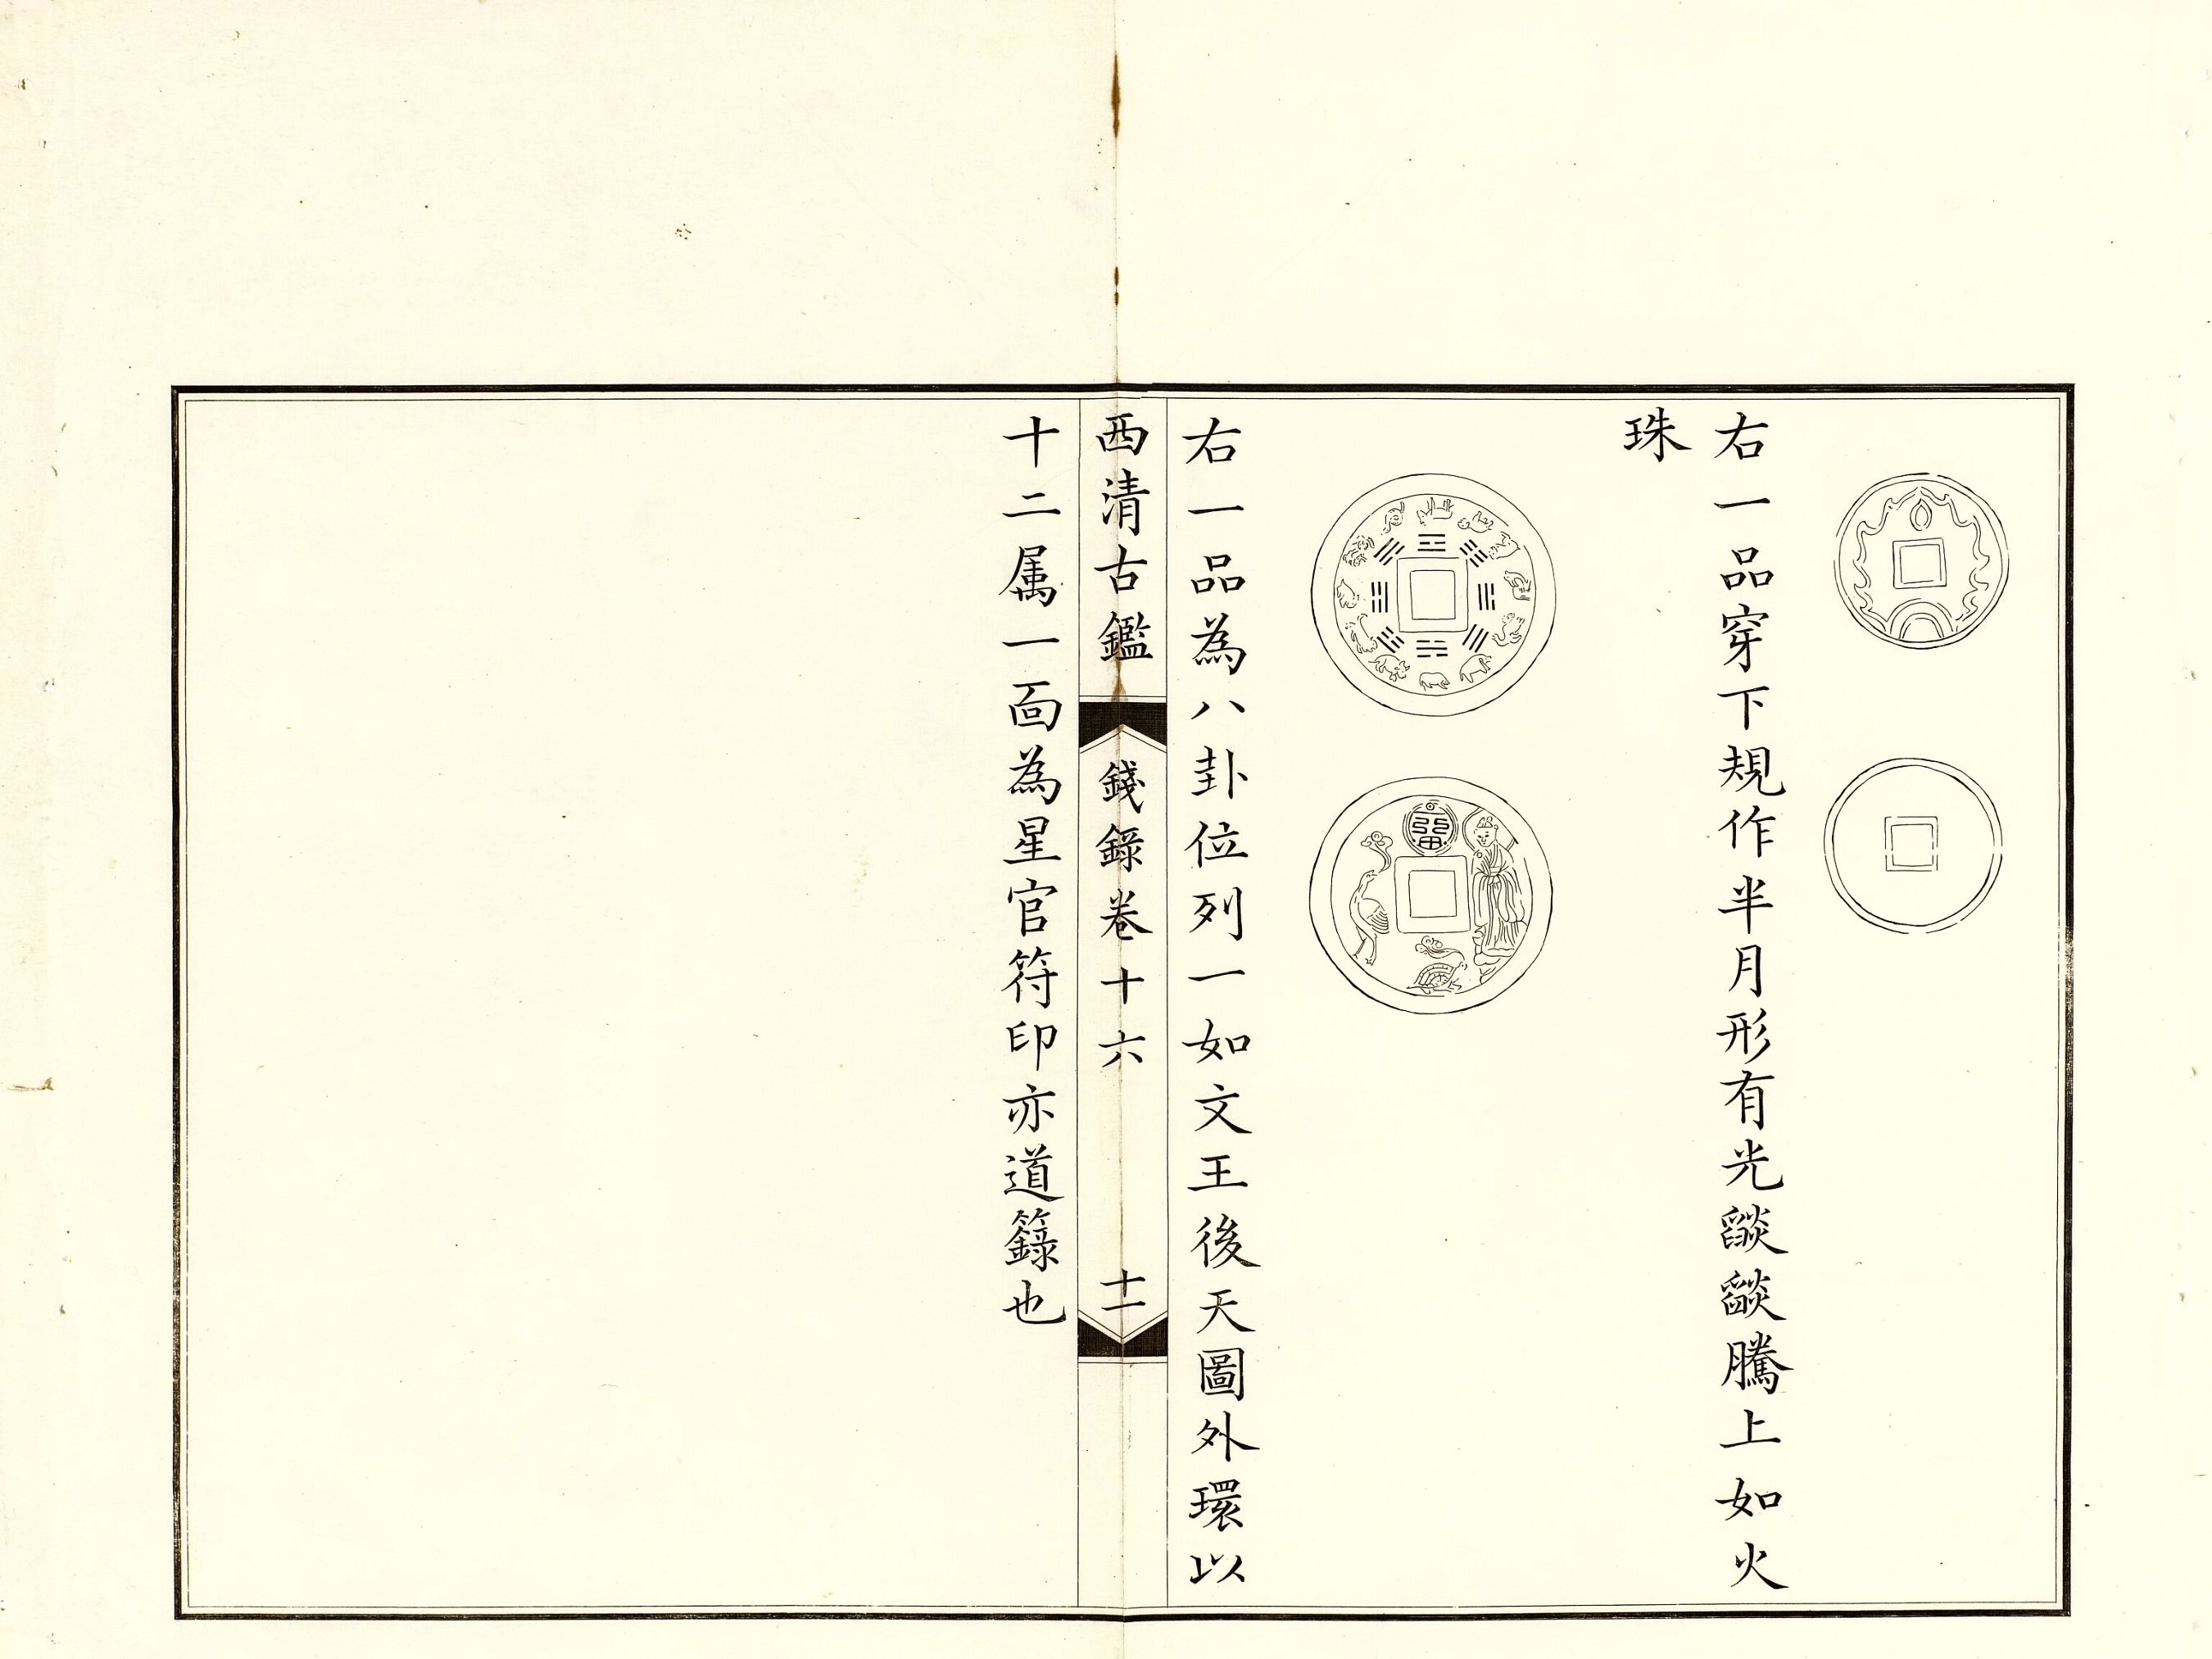 右一品穿下規作半月形有光燄燄騰上如火
珠
右一品為八卦位列一如文王後天圖外環以
西清古鑑 錢錄卷十六 十一
十二属一面為星官符印亦道籙也